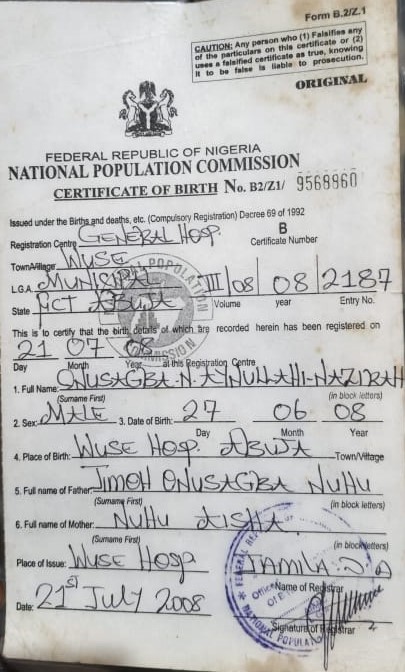 Form B.2/Z.1
CAUTION: Any person who (1) Falsifies any
of the particulars on this certificate or (2)
uses a falsified certificate as true, knowing
it to be false is liable to prosecution.
ORIGINAL
FEDERAL REPUBLIC OF NIGERIA
NATIONAL POPULATION COMMISSION
CERTIFICATE OF BIRTH No. B2/Z1/ 9568960
Issued under the Births and deaths, etc. (Compulsory Registration) Decree 69 of 1992
Registration Centre GENERAL HOSP. B
Certificate Number
Town/Village WUSE
L.G.A. MUNICIPAL III/08 08 2187
State FCT ABUJA Volume year Entry No.
This is to certify that the birth details of which are recorded herein has been registered on
21 07 08
Day Month Year at this Registration Centre
1. Full Name: ONUSAGBA-N-A NULLAHI-NAZIRAH
(Surname First) (in block letters)
2. Sex: MALE 3. Date of Birth: 27 06 08
Day Month Year
4. Place of Birth: WUSE HOSP. ABUJA Town/Village
5. Full name of Father: JIMOH ONUSAGBA NUHU
(Surname First) (in block letters)
6. Full name of Mother: NUHU AISHA
(Surname First) (in block letters)
Place of Issue: WUSE HOSP JAMILA
Name of Registrar
Date: 21st JULY 2008
Signature of Registrar